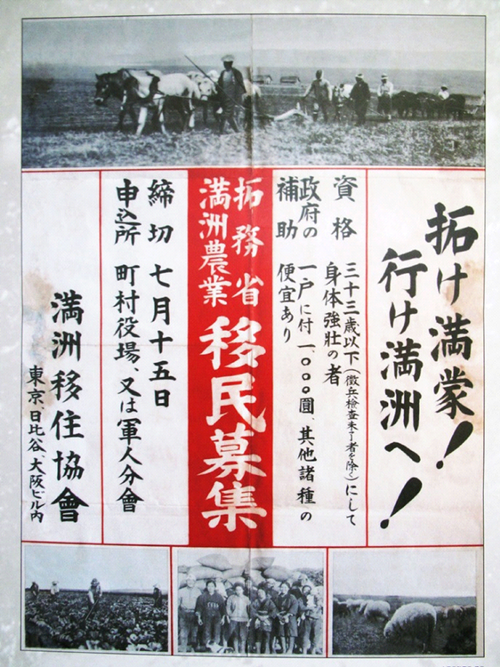 拓け満蒙！
行け満洲へ！
資格 三十三歳以下（徴兵検査未了者を除く）にして
身体強壮の者
政府の補助 一戸に付一、〇〇〇圓、其他諸種の
便宜あり
拓務省
満洲農業
移民募集
締切 七月十五日
申込所 町村役場、又は軍人分會
満洲移住協會
東京日比谷、大阪ビル内